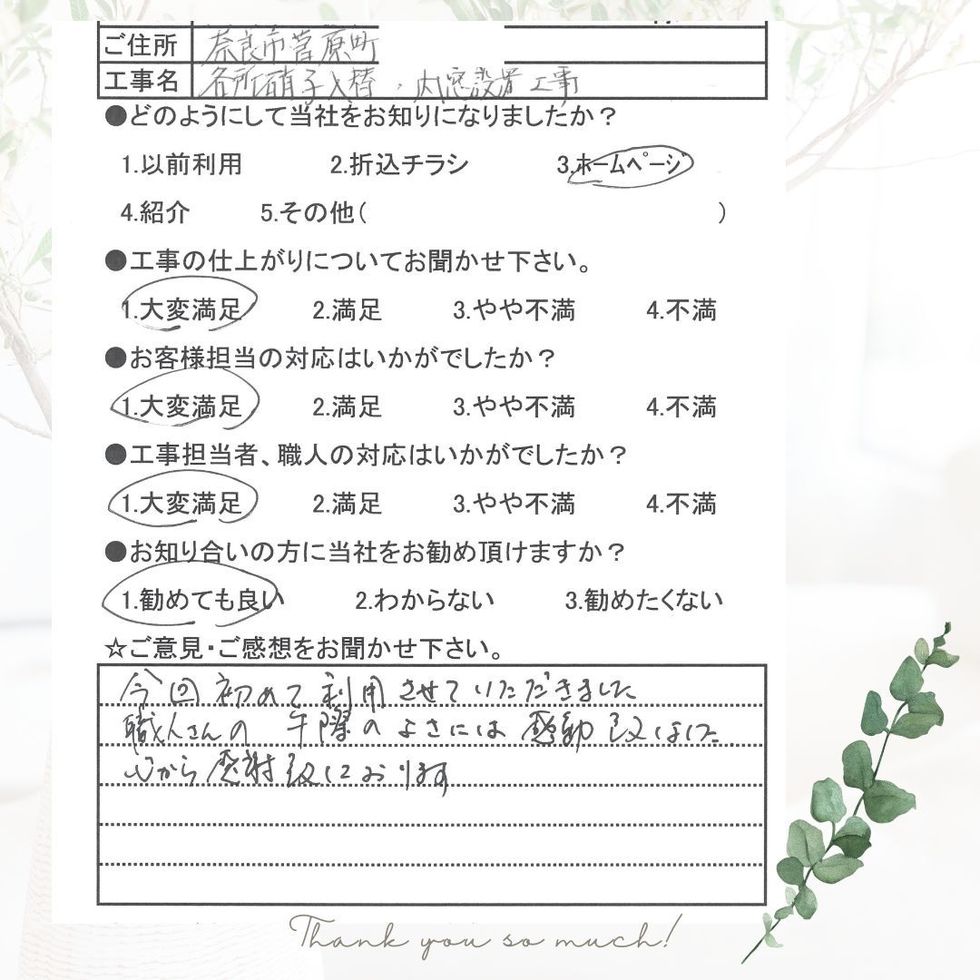 ご住所 奈良市菅原町
工事名 各所硝子入替、内窓設置工事
●どのようにして当社をお知りになりましたか？
1.以前利用 2.折込チラシ 3.ホームページ
4.紹介 5.その他( )
●工事の仕上がりについてお聞かせ下さい。
1.大変満足 2.満足 3.やや不満 4.不満
●お客様担当の対応はいかがでしたか？
1.大変満足 2.満足 3.やや不満 4.不満
●工事担当者、職人の対応はいかがでしたか？
1.大変満足 2.満足 3.やや不満 4.不満
●お知り合いの方に当社をお勧め頂けますか？
1.勧めても良い 2.わからない 3.勧めたくない
☆ご意見・ご感想をお聞かせ下さい。
今回初めて利用させていただきました
職人さんの手際のよさには感動致しました
心から感謝致しております
Thank you so much!